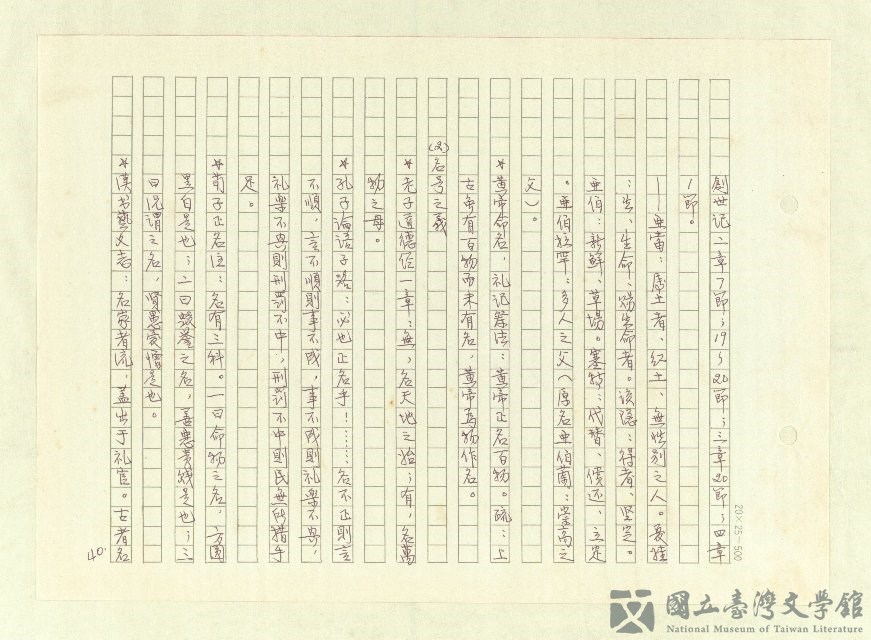 創世记二章7節；19～20節；三章20節；四章
1節。
——亜當：屬土者、紅土、無性别之人。夏娃
：生、生命、賜生命者。该隱：得者、坚定。
亜伯：新鮮、草場。塞特：代替、償还、立定
。亜伯拉罕：多人之父（原名亜伯蘭：崇高之
父）。
＊黄帝命名，礼记祭法：黄帝正名百物。疏：上
古虽有百物而未有名，黄帝爲物作名。
(2)名号之義
＊老子道德经一章：無，名天地之始；有，名萬
物之母。
＊孔子論语子路：必也正名乎！……名不正則言
不順，言不順則事不成，事不成則礼樂不興，
礼樂不興則刑罰不中，刑罰不中則民無所措手
足。
＊荀子正名注：名有三科。一曰命物之名，方圓
黑白是也；二曰毁誉之名，善惡貴贱是也；三
曰况謂之名，賢愚愛憎是也。
＊漢书藝文志：名家者流，蓋出于礼官。古者名
40.
20×25=500
國立臺灣文學館
National Museum of Taiwan Literature